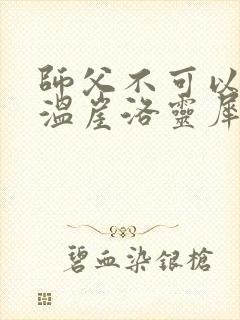 師父不可以
溫崖洛靈犀
碧血染銀槍